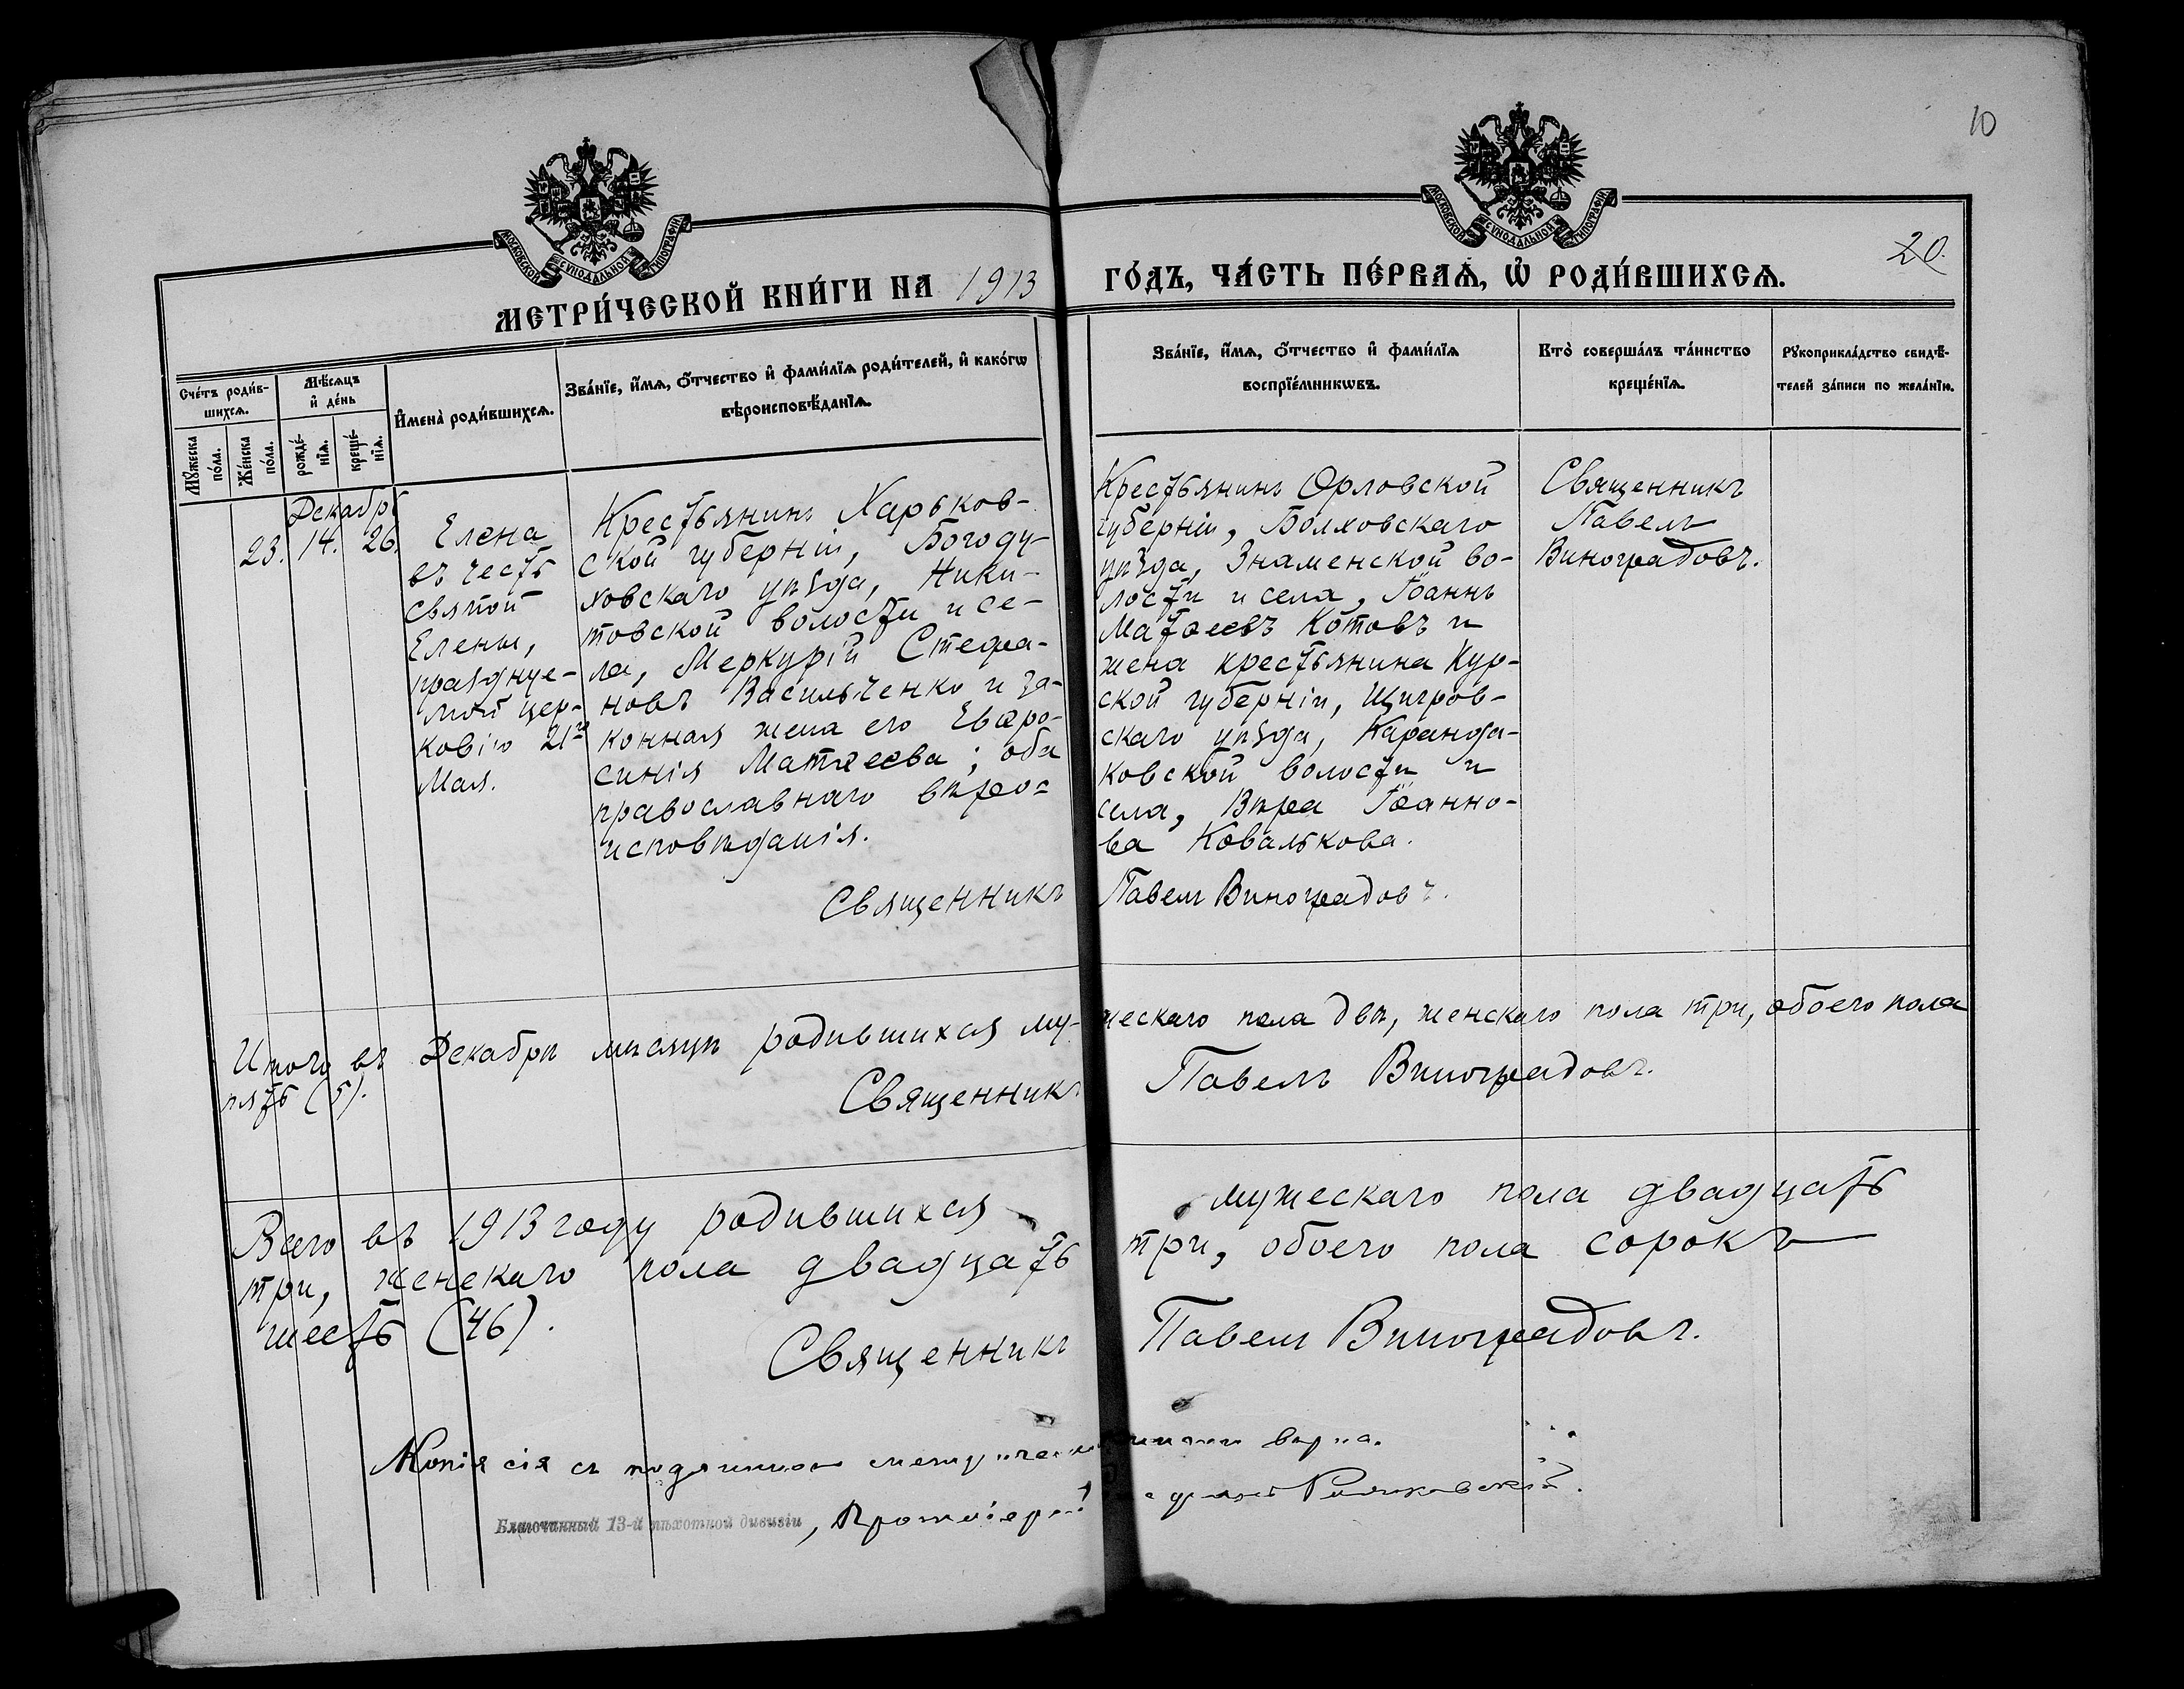 10
МОСКОВСКОЙ СѴНОДАЛЬНОЙ ТИПОГРАФІИ
МОСКОВСКОЙ СѴНОДАЛЬНОЙ ТИПОГРАФІИ
20.
МЕТРИ́ЧЕСКОЙ КНИ́ГИ НА 1913 ГО́ДЪ, ЧА́СТЬ ПЕ́РВАѦ, Ѡ҆ РОДИ́ВШИХСѦ.
Сче́тъ роди́в-
шихсѧ.
Мꙋ́жеска
по́ла.
Же́нска
по́ла.
Мѣ́сѧцъ
и҆ де́нь
рожде́-
нїѧ.
креще́-
нїѧ.
И҆мена̀ роди́вшихсѧ.
Зва́нїе, и҆́мѧ, ѻ҆́тчество и҆ фами́лїѧ роди́телей, и҆ како́гѡ
вѣроисповѣ́данїѧ.
Зва́нїе, и҆́мѧ, ѻ҆́тчество и҆ фами́лїѧ
воспрїе́мникѡвъ.
Кто̀ соверша́лъ та́инство
креще́нїѧ.
Рꙋкоприкла́дство свидѣ́-
телей за́писи по жела́нїю.
Декабрь
23. 14. 26.
Елена
въ честь
святой
Елены,
празднуе-
мой цер-
ковію 21го
Мая.
Крестьянинъ Харьков-
ской губерніи, Богоду-
ховскаго уѣзда, Ники-
товской волости и се-
ла, Меркурій Стефа-
новъ Васильченко и за-
конная жена его Евфро-
синія Матѳеева; оба
православнаго вѣро-
исповѣданія.
Крестьянинъ Орловской
губерніи, Болховскаго
уѣзда, Знаменской во-
лости и села, Іоаннъ
Матѳеевъ Котовъ и
жена крестьянина Кур-
ской губерніи, Щигров-
скаго уѣзда, Каранда-
ковской волости и
села, Вѣра Іоанно-
ва Ковалькова.
Священникъ
Павелъ
Виноградовъ.
Священникъ Павелъ Виноградовъ.
Итого въ Декабрѣ мѣсяцѣ родившихся му-жескаго пола два, женскаго пола три, обоего пола
пять (5).
Священникъ Павелъ Виноградовъ.
Всего въ 1913 году родившихся мужескаго пола двадцать
три, женскаго пола двадцать три, обоего пола сорокъ
шесть (46).
Священникъ Павелъ Виноградовъ.
Копія сія съ подлинною вѣрна.
Благочинный 13-й пѣхотной дивизіи, Протоіерей